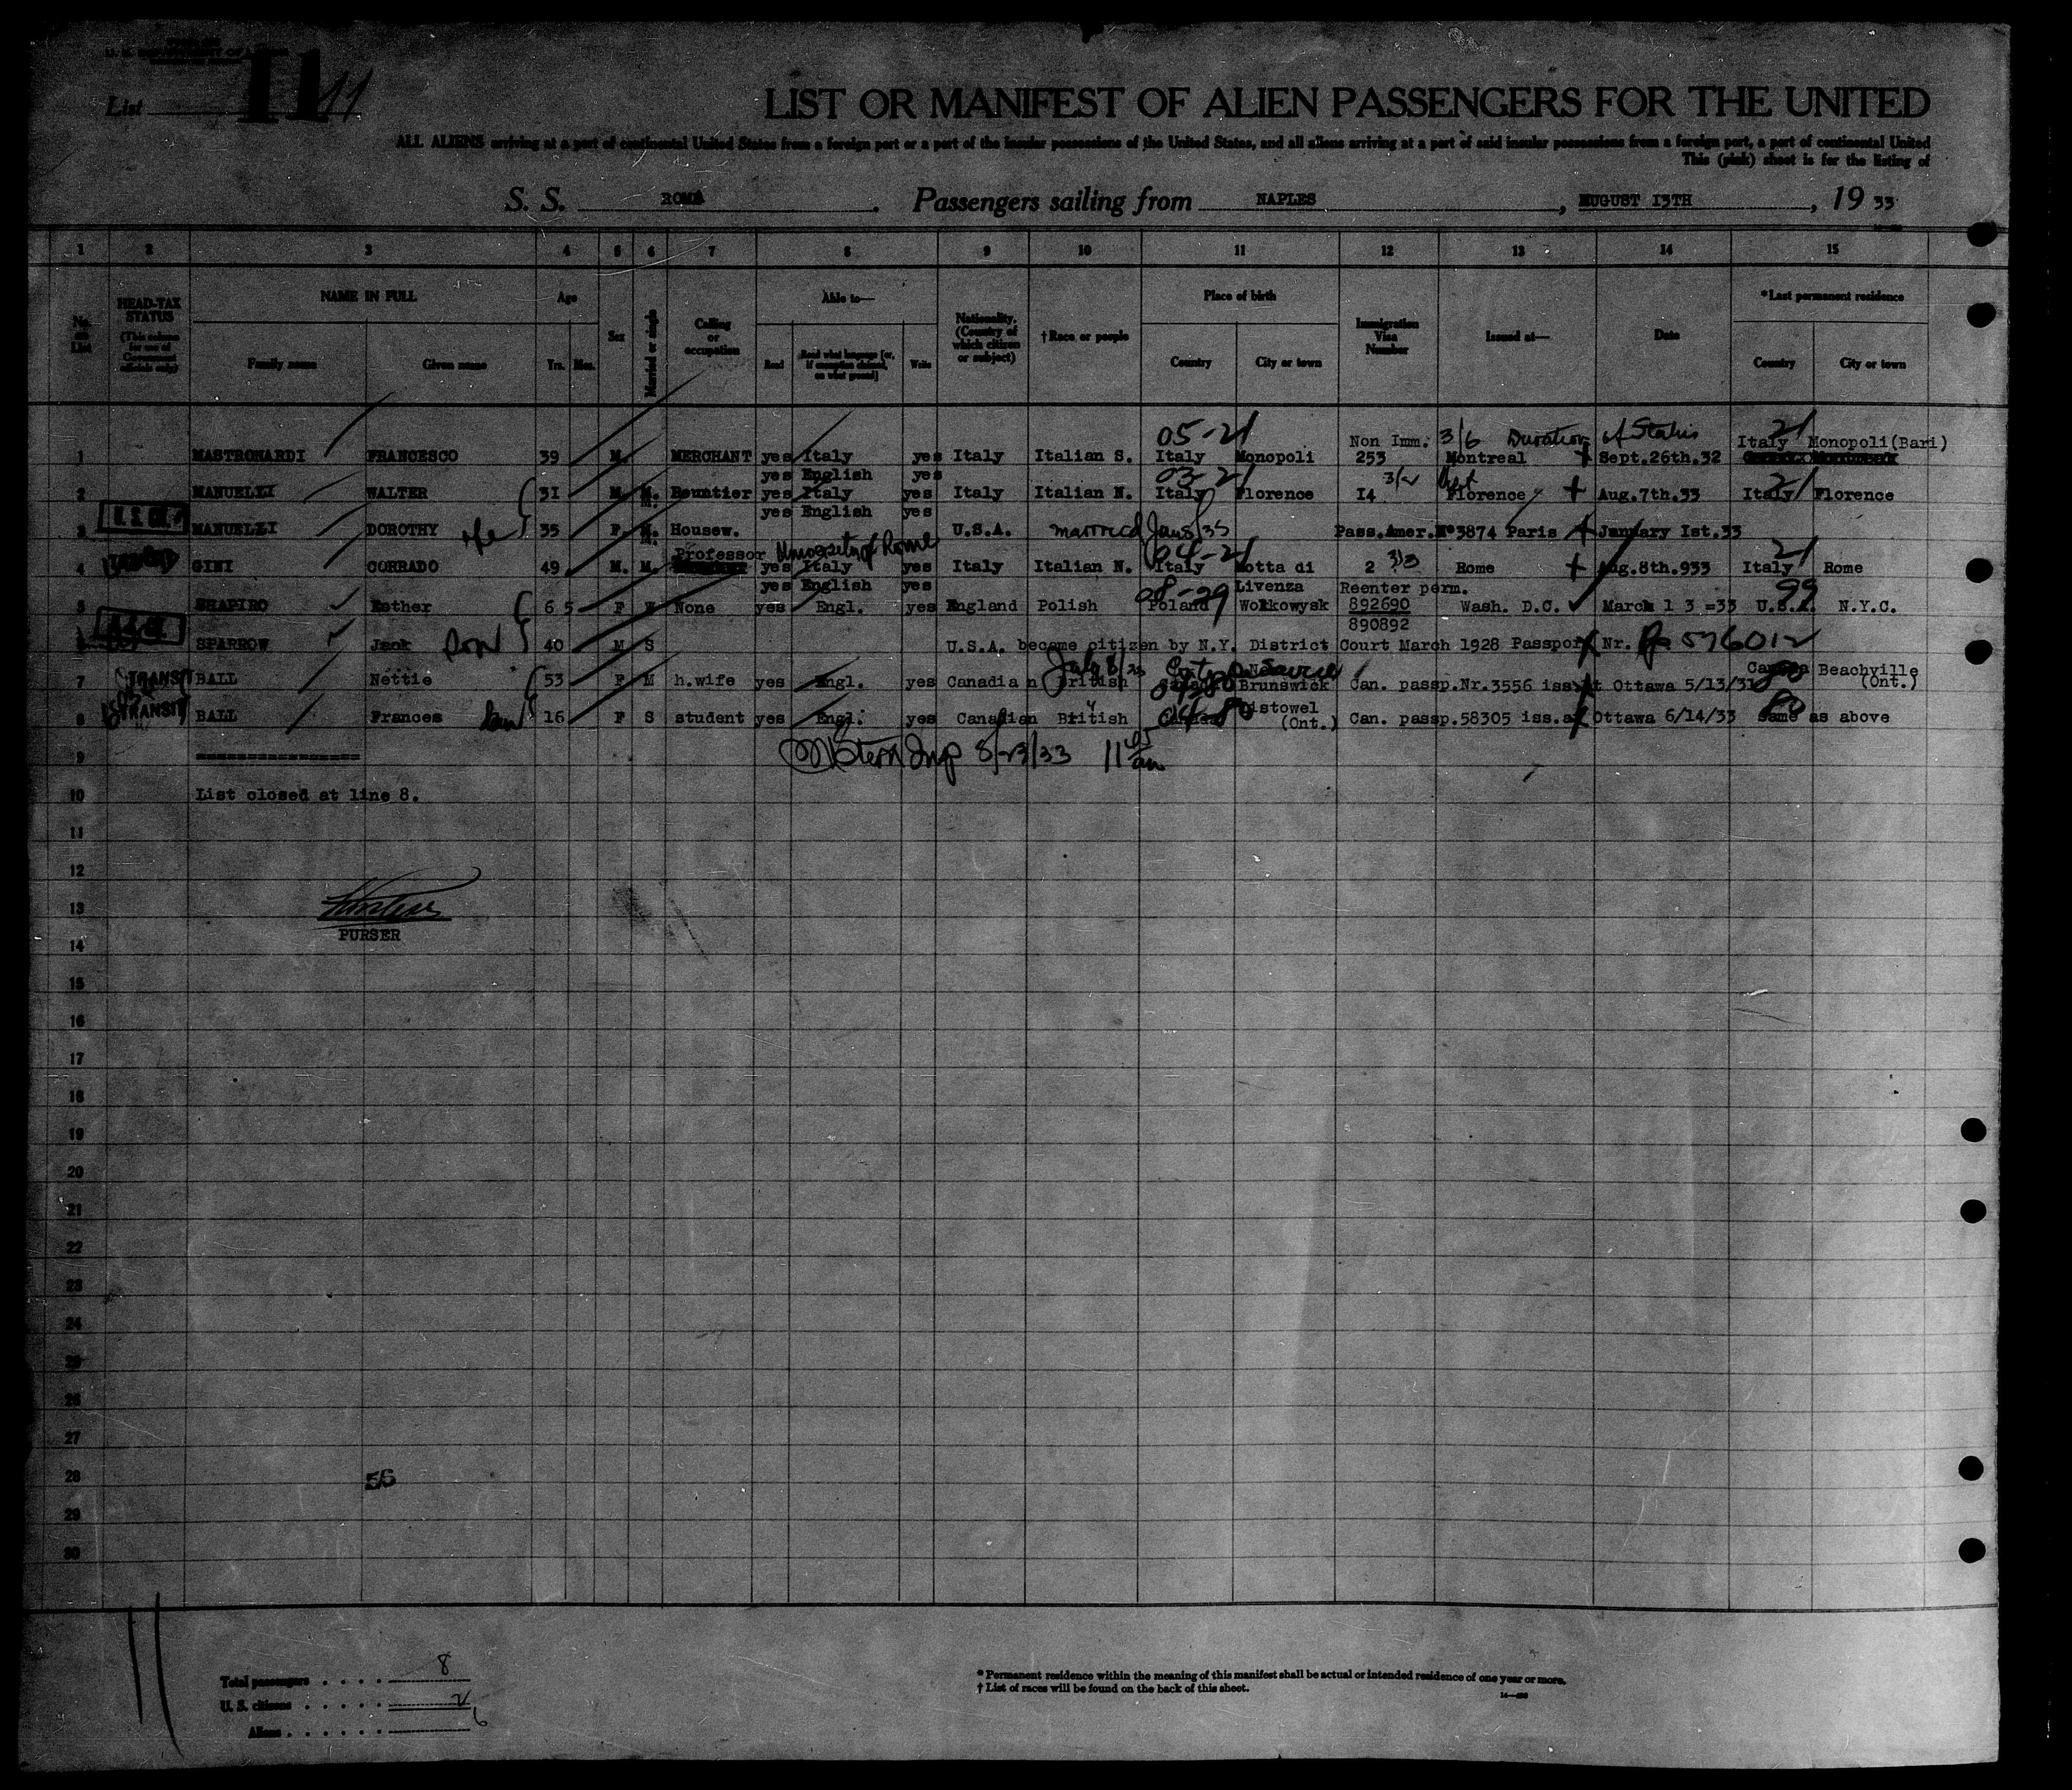 List 11 11
LIST OR MANIFEST OF ALIEN PASSENGERS FOR THE UNITED
ALL ALIENS arriving at a port of continental United States from a foreign port or a port of the insular possessions of the United States, and all aliens arriving at a port of said insular possessions from a foreign port, a port of continental United
This (pink) sheet is for the listing of
S. S. ROMA Passengers sailing from NAPLES, AUGUST 13TH, 19 33
1 2 3 4 5 6 7 8 9 10 11 12 13 14 15
No. on List
HEAD-TAX STATUS (This column for use of Government officials only)
NAME IN FULL Family name Given name
Age Yrs. Mos.
Sex
Married or single
Calling or occupation
Able to— Read Read what language [or, if exemption claimed, on what ground] Write
Nationality. (Country of which citizen or subject)
†Race or people
Place of birth Country City or town
Immigration Visa Number
Issued at—
Date
*Last permanent residence Country City or town
05-21 Non Imm. 3/6 Duration of Status 21 Italy Monopoli(Bari)
1 MASTRONARDI FRANCESCO 39 M. MERCHANT yes Italy yes Italy Italian S. Italy Monopoli 253 Montreal Sept.26th.32
yes English yes 03-21 3/2
2 MANUELLI WALTER 31 M. M. Rentier yes Italy yes Italy Italian N. Italy Florence 14 Florence Aug.7th.33 21 Italy Florence
yes English yes
3 MANUELLI DOROTHY 35 F. M. Housew. U.S.A. married Pass.Amer.Nº3874 Paris January Ist.33
Professor University of Rome 04-21
4 GINI CORRADO 49 M. M. yes Italy yes Italy Italian N. Italy Motta di 2 3/3 Rome Aug.8th.933 21 Italy Rome
yes English yes 08-29 Livenza Reenter perm. 99
5 SHAPIRO Esther 65 F W None yes Engl. yes England Polish Poland Wolkowysk 892690 Wash. D.C. March 1 3 =33 U.S.A. N.Y.C.
890892
6 SPARROW Jack son 40 M S U.S.A. became citizen by N.Y. District Court March 1928 Passport Nr. 576012
7 TRANSIT BALL Nettie 53 F M h.wife yes Engl. yes Canadian British New Brunswick Can. passp.Nr.3556 iss.at Ottawa 5/13/31 Canada Beachville (Ont.)
8 TRANSIT BALL Frances 16 F S student yes Engl. yes Canadian British Canada Listowel (Ont.) Can. passp.58305 iss.at Ottawa 6/14/33 same as above
9 ================ Stern Insp 8/23/33 11
10 List closed at line 8.
11
12
13
PURSER
14
15
16
17
18
19
20
21
22
23
24
25
26
27
28 55
29
30
Total passengers . . . . 8
U. S. citizens . . . . . 2
Aliens . . . . . . 6
* Permanent residence within the meaning of this manifest shall be actual or intended residence of one year or more.
† List of races will be found on the back of this sheet.